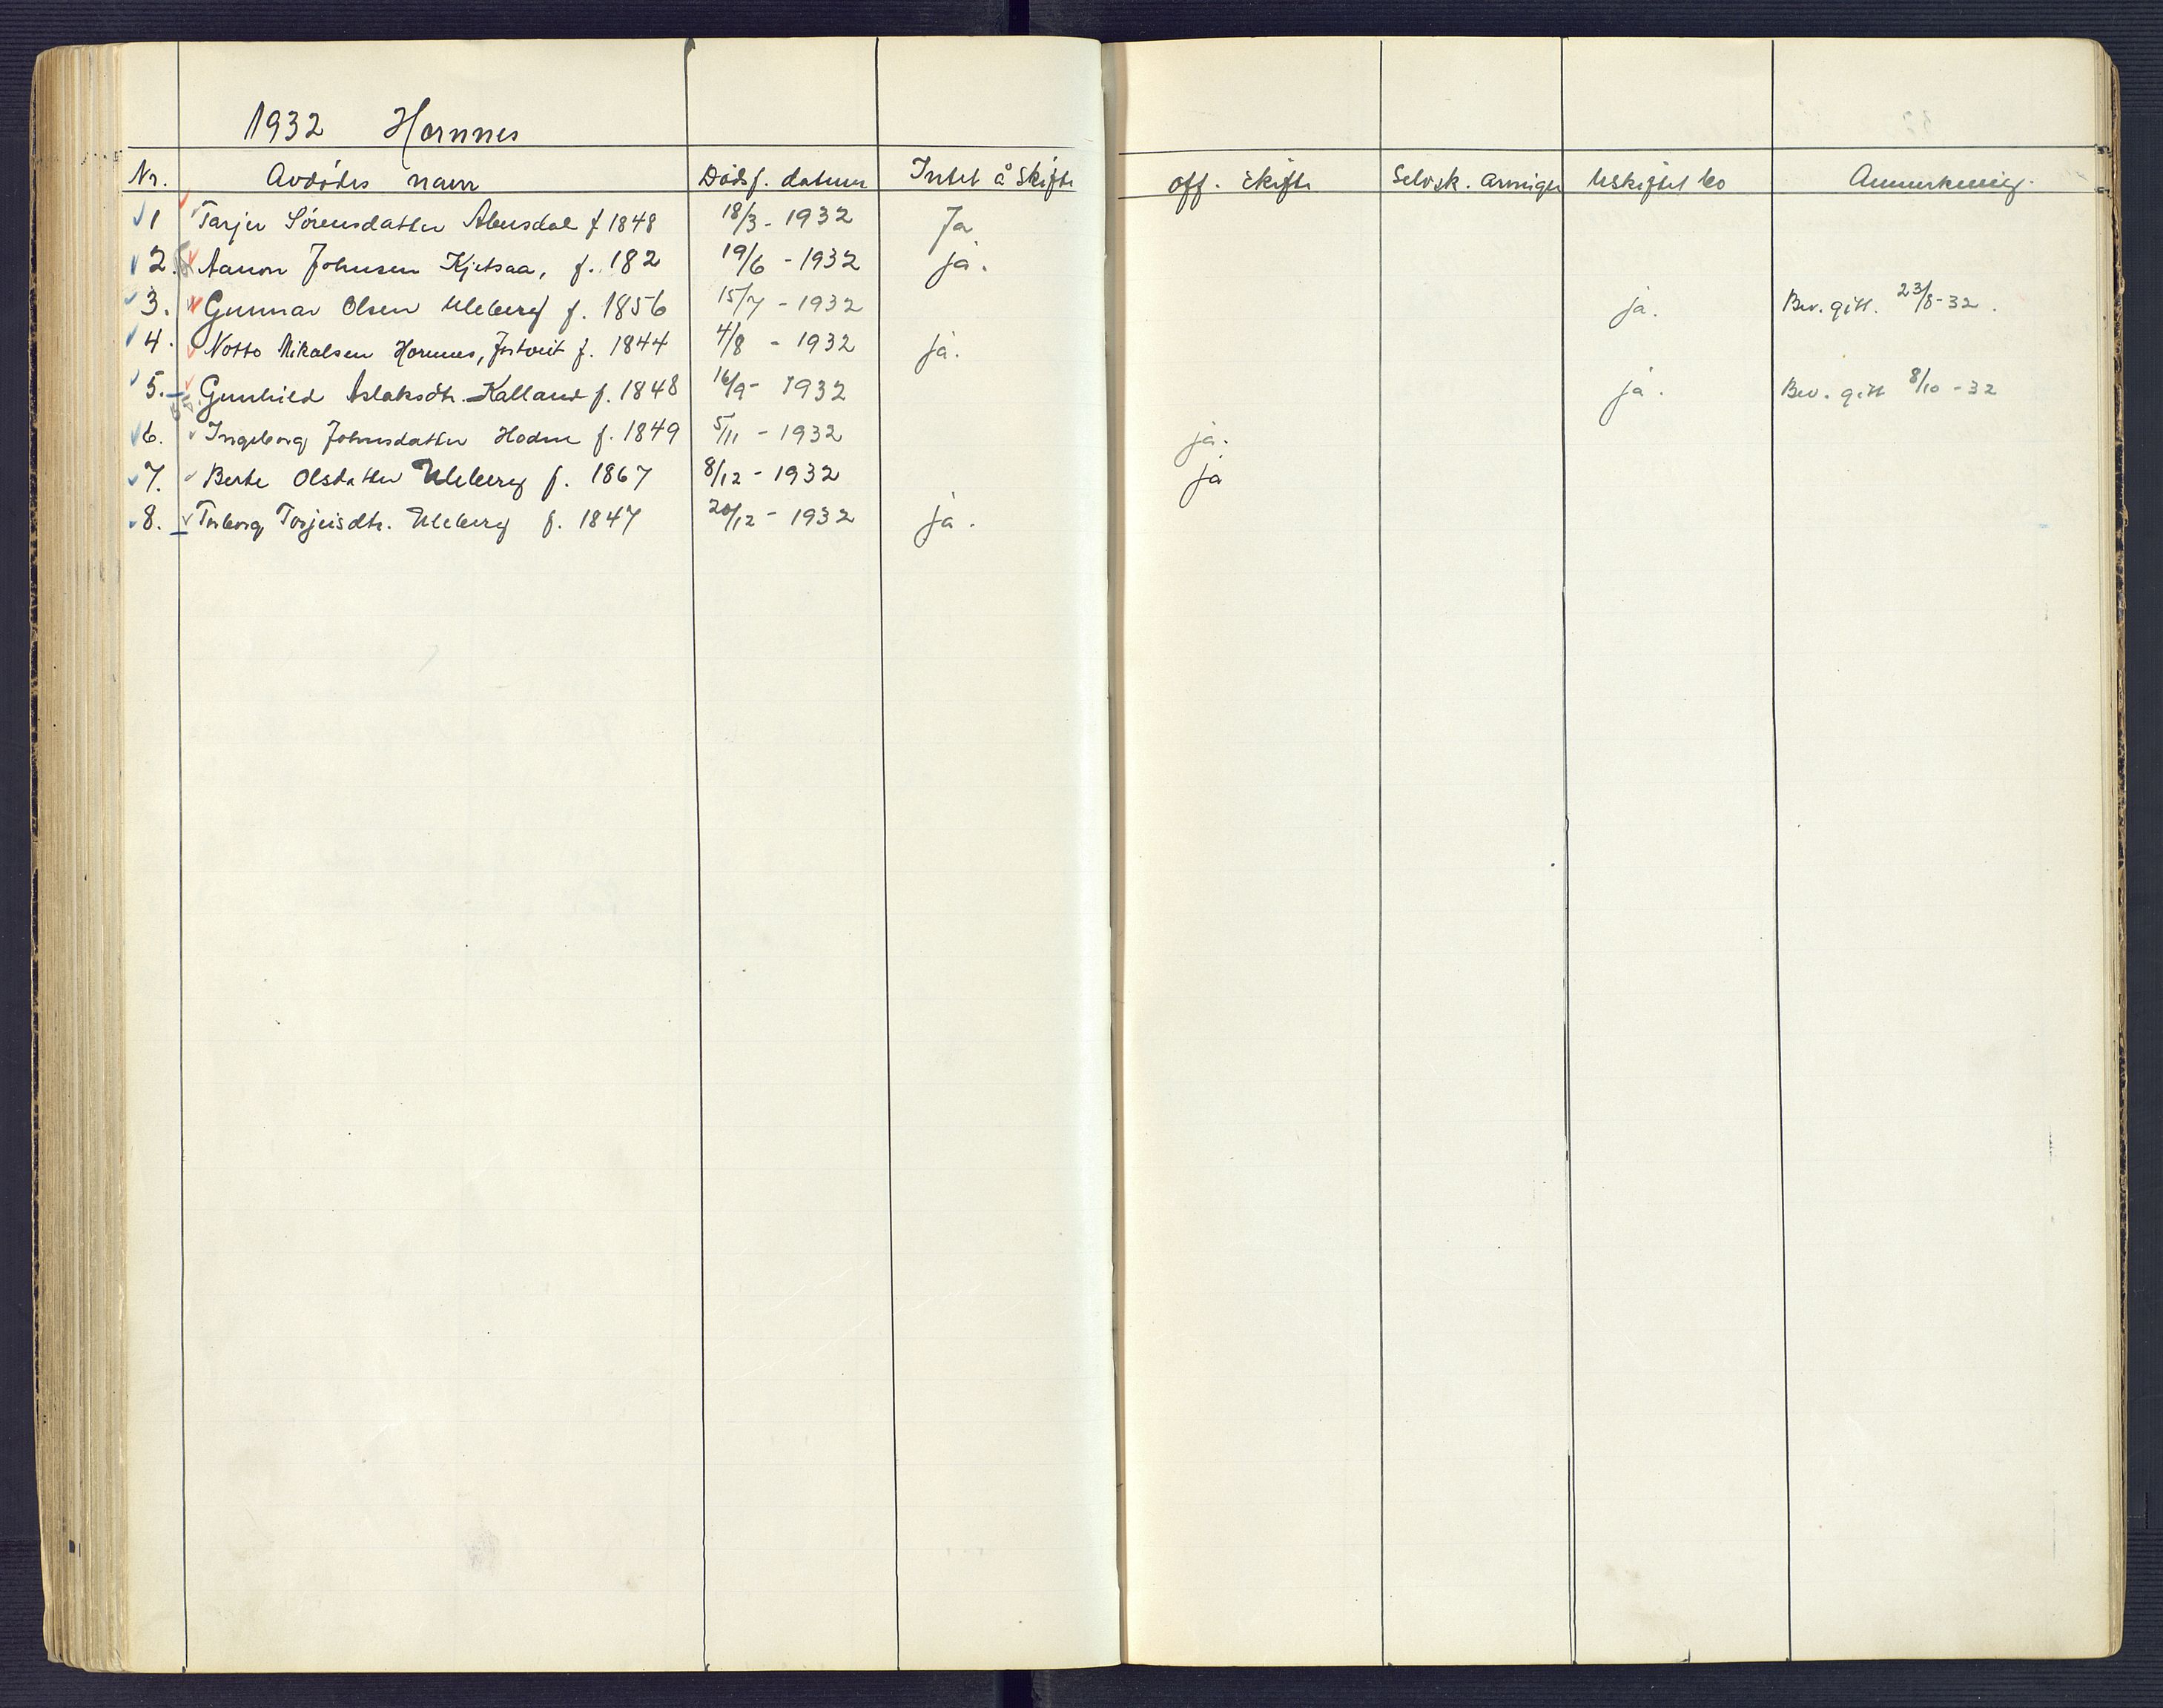 1932 Hornnes
Nr. Avdødes navn Dødsf. datum Intet å skifte off. skifte Selvsk. arvinger Uskiftet bo Anmerkning.
1 Tarjer Sørensdatter Abusdal f 1848 18/3 - 1932 Ja
2. Aanon Johnsen Kjetsaa, f. 182 19/6 - 1932 ja.
3. Gunnar Olsen Uleberg f. 1856 15/7 - 1932 ja. Bev. gitt. 23/8-32.
4. Notto Nikolsen Hornnes, f. 1844 4/8 - 1932 ja.
5. Gunhild Aslaksdtr. Kalland f. 1848 16/9 - 1932 ja. Bev. gitt 8/10 - 32
6. Ingeborg Johnsdatter Hodne f. 1849 5/11 - 1932 ja.
7. Berte Olsdatter Uleberg f. 1867 8/12 - 1932 ja
8. Torborg Torjeisdtr. Uleberg f. 1847 20/12 - 1932 ja.